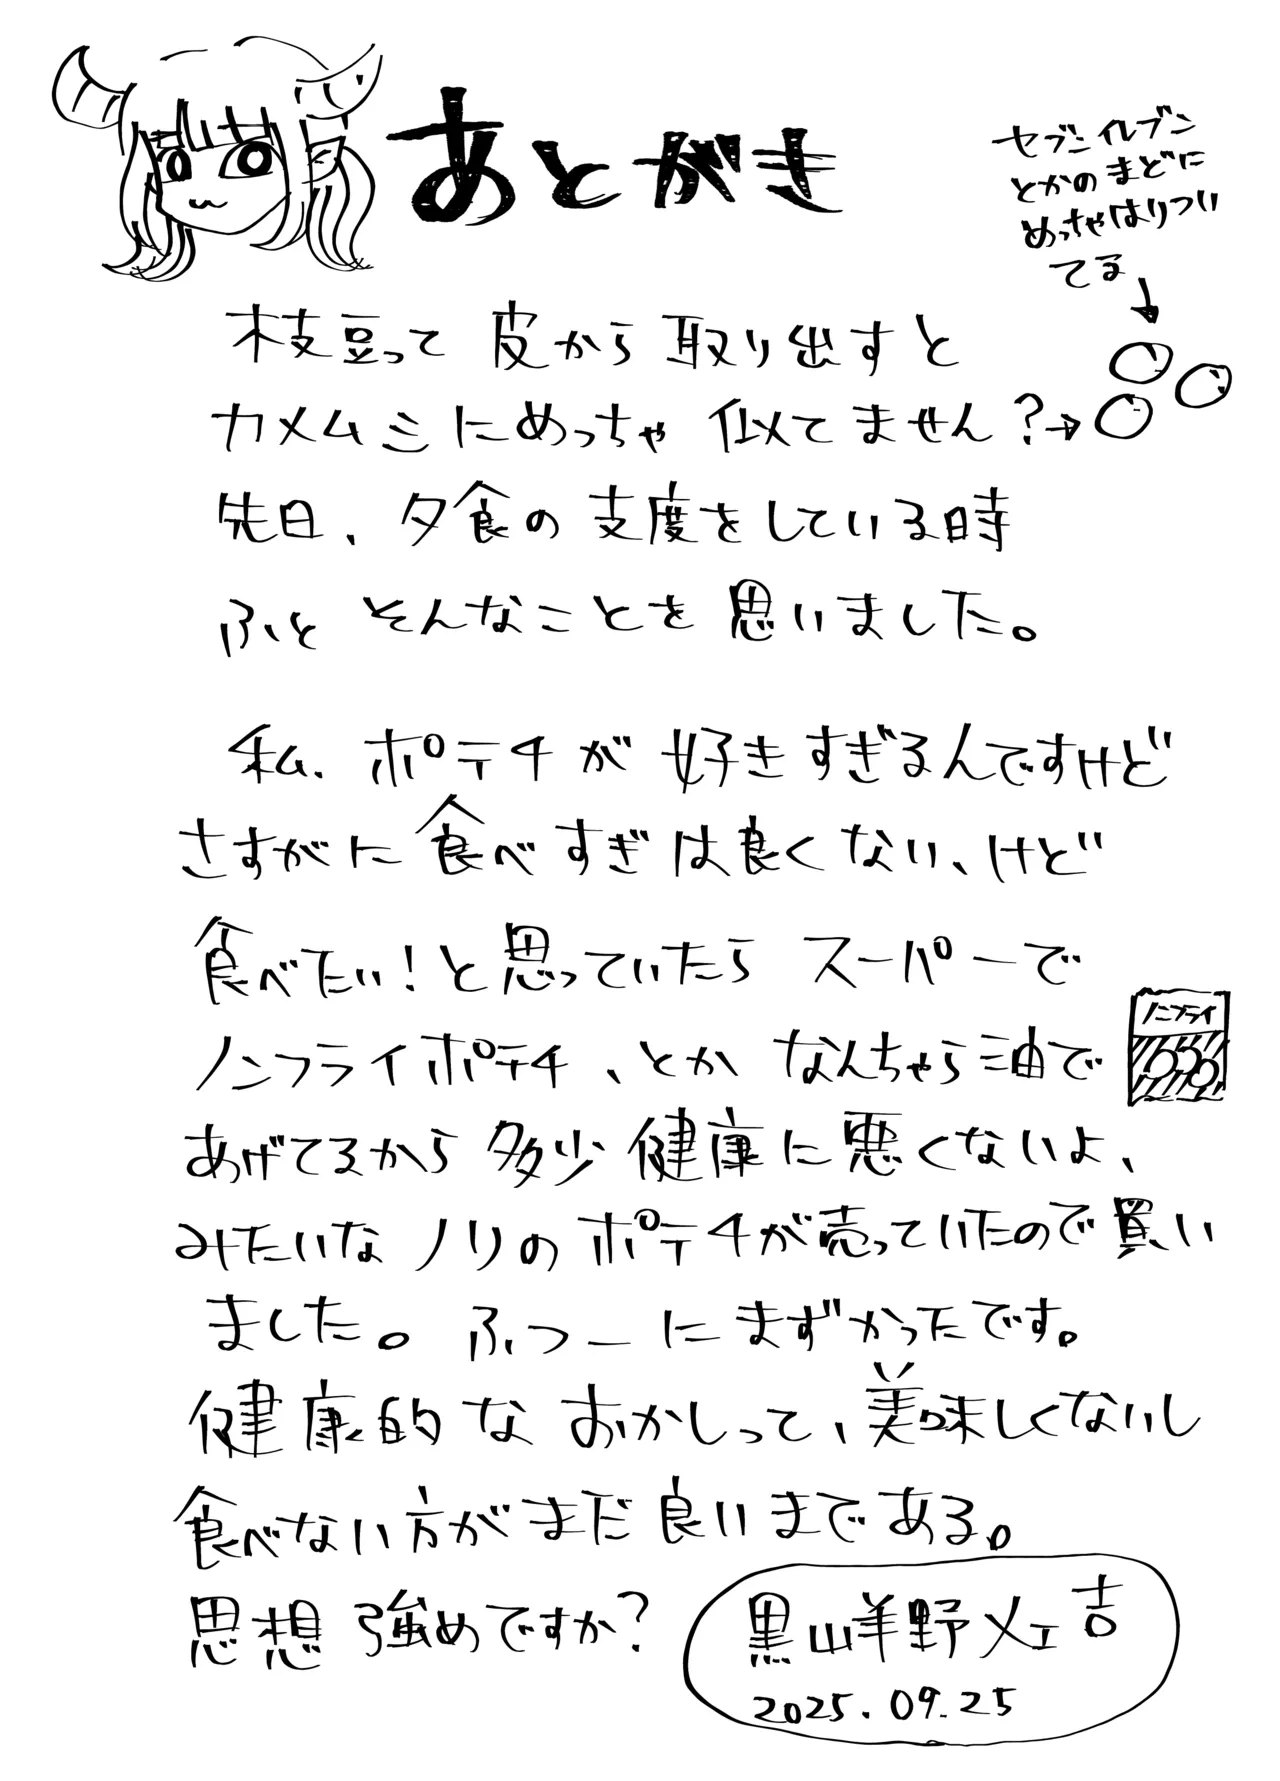 あとがき
セブンイレブン
とかのまどに
めっちゃはりつい
てる
枝豆って皮から取り出すと
カメムシにめっちゃ似てません?→
先日、夕食の支度をしている時
ふとそんなことを思いました。
私、ポテチが好きすぎるんですけど
さすがに食べすぎは良くない、けど
食べたい!と思っていたらスーパーで
ノンフライポテチ、とかなんちゃら油で
ノンフライ
あげてるから多少健康に悪くないよ、
みたいなノリのポテチが売っていたので買い
ました。ふつーにまずかったです。
健康的なおかしって、美味しくないし
食べない方がまだ良いまである。
思想強めですか?
黒山羊野メェ吉
2025.09.25